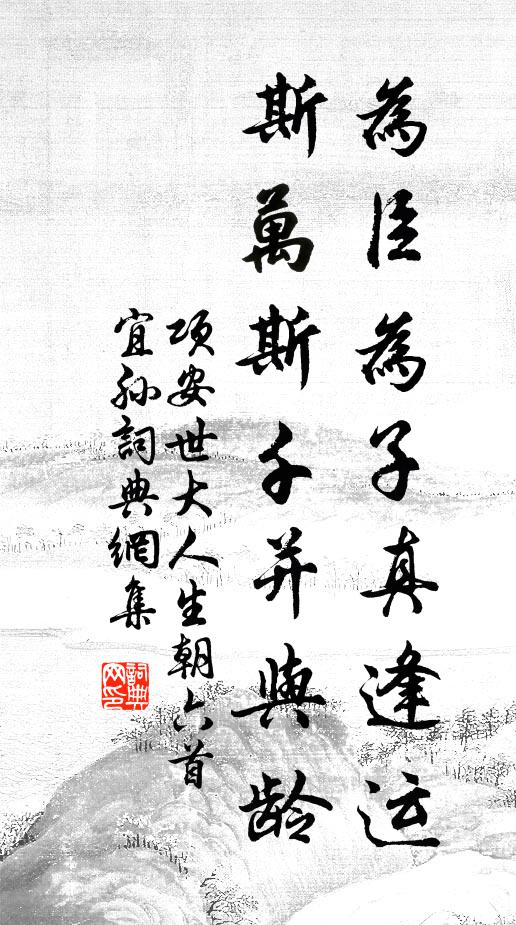 為臣為子真逢运
斯萬斯千并與龄
项安世大人生朝六首
宜孙詞典網集
詞典网印